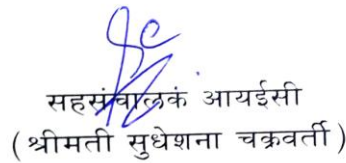 सहसंचालक आयईसी
( श्रीमती सुधेशना चक्रवर्ती )